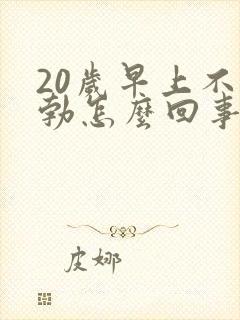 20歲早上不
勃怎麼回事
皮娜